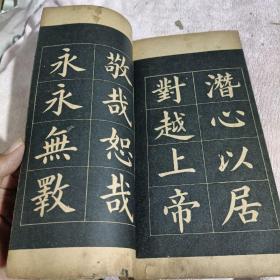 潛心以居
對越上帝
敬哉恕哉
永永無斁